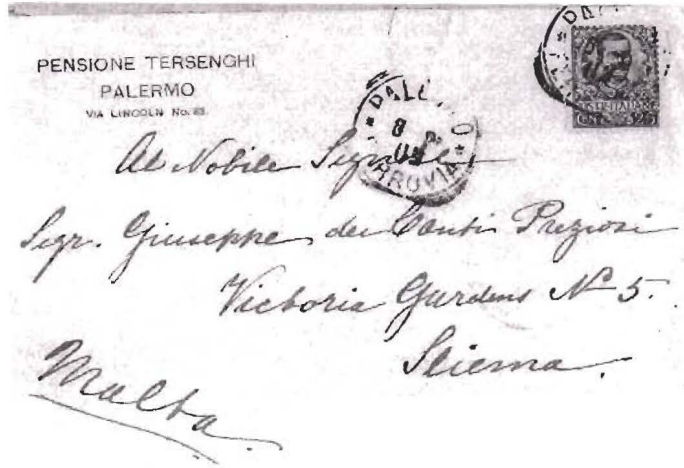 PENSIONE TERSENGHI
PALERMO
VIA LINCOLN No.
FERROVIA
Al Nobile Signore
Sigr. Giuseppe dei Conti Preziosi
Victoria Gardens No 5.
Sliema.
Malta